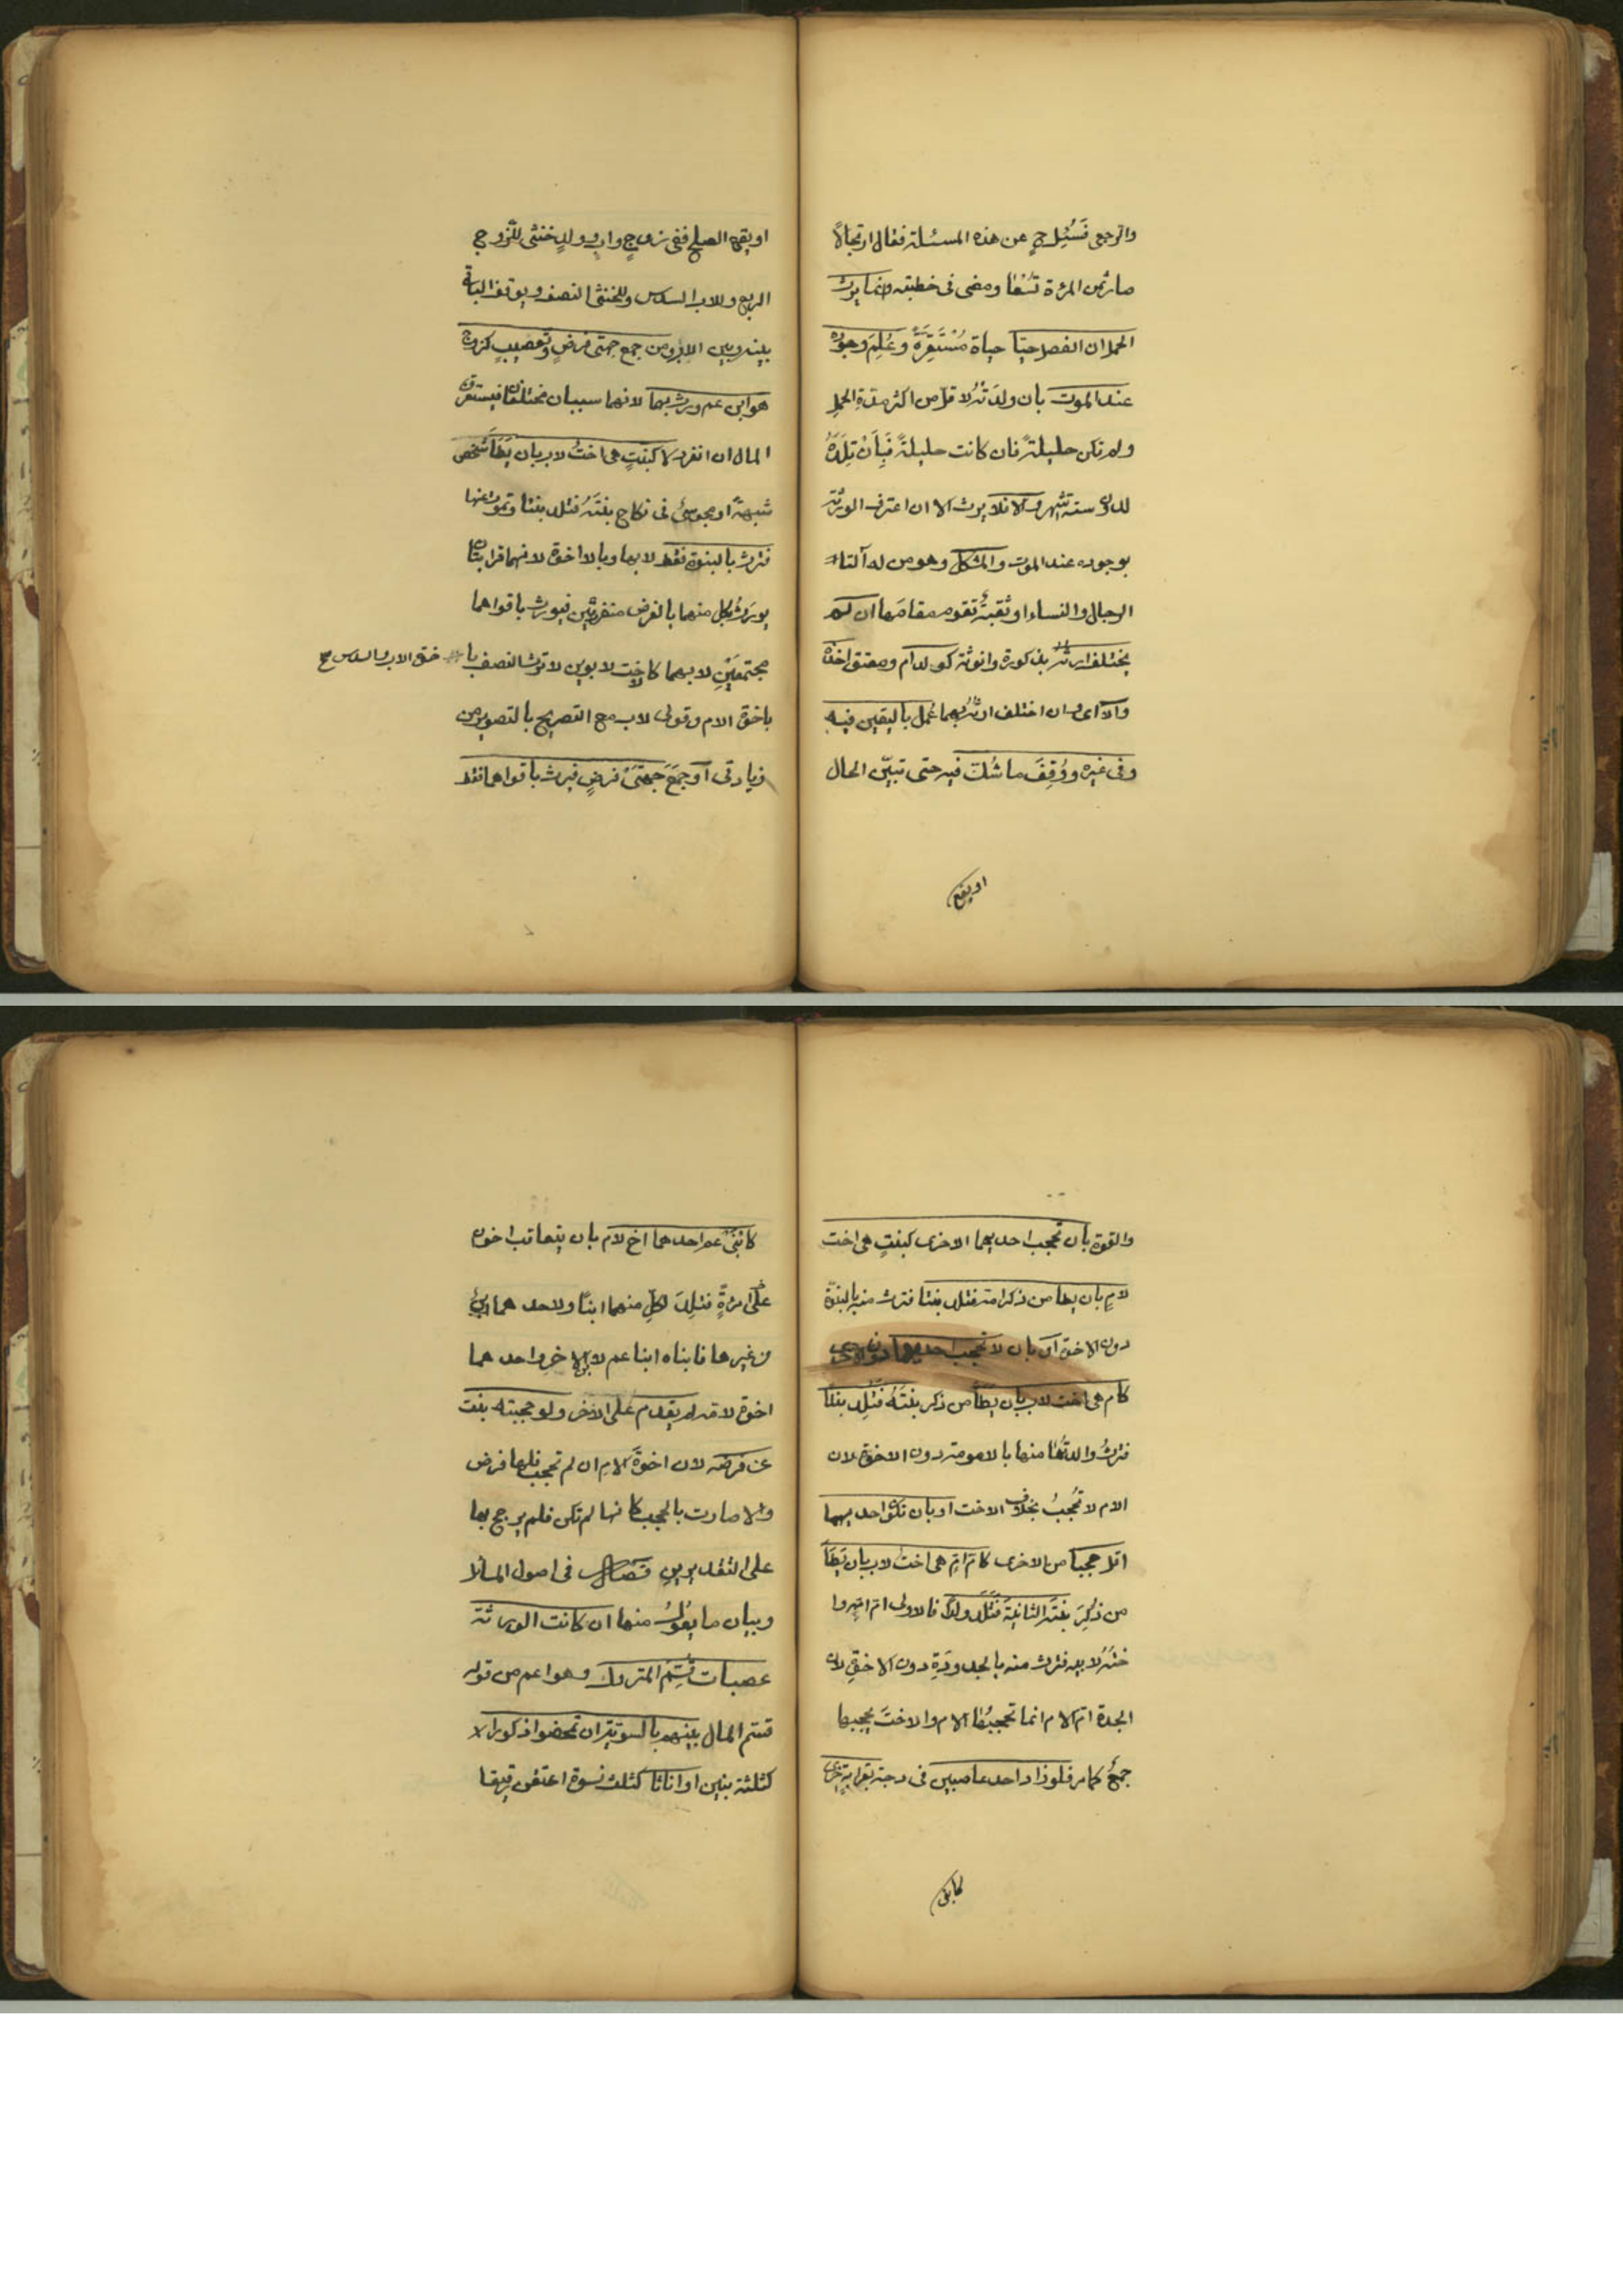 والرجعى فسُئِل ح عن هذه المسئلة فقال ارتجالاً
صار ثمن المرءة تُسْعًا ومضى فى خطبته وانما يرث
الحمل ان انفصل حيًّا حياة مُسْتَقِرَّةً وعُلِمَ وجوده
عند الموت بان ولدَتْهُ لاقل من اكثر مدة الحمل
ولم تكن حليلةً فان كانت حليلةً فبِأَنْ تلِدَهُ
لدون ستة اشهر والا فلا يرث الا ان اعترف الورثة
بوجوده عند الموت والمشكل وهو من له آلتا
الرجال والنساء او ثقبةٌ تقوم مقامَها ان لم
يختلف ارثُه بذكورة وانوثة كولد ام ومعتق اخذه
والا اى وان اختلف ارثُه بهما عُمل باليقين فيه
وفى غيره ووُقِفَ ما شُك فيه حتى تبيّن الحال
او يقع
او يقع الصلح ففى زوجٍ وابٍ وولدٍ خنثى للزوج
الربع وللاب السدس وللخنثى النصف ويوقف الباقى
بينه وبين الاب ومن جمع جهتى فرضٍ وتعصيبٍ كزوج
هو ابن عم ورث بهما لانهما سببان مختلفان فيستغرق
المال ان انفرد لا كبنتٍ هى اختٌ لاب بان يَطَأَ شخص
شبهةً او مجوسىٌّ فى نكاح بنتَهُ فتلد بنتا وتموت عنها
فترث بالبنوة فقط لا بها وبالاخوة لانهما قرابتان
يورَثُ بكل منهما بالفرض منفردتين فيورث باقواهما
مجتمعَيْنِ لا بهما كالاخت لابوين لا ترث النصف با خوة الاب والسدس صح
باخوة الام وقولى لاب مع التصريح بالتصوير من
زيادتى او جمَعَ جهتَىْ فرضٍ فيرث باقواهما فقط
والقوة بان تحجب احديهما الاخرى كبنتٍ هى اخت
لامٍ بان يطأ من ذكر امه فتلد بنتا فترث منه بالبنوة
دون الاخوة او بان لا تحجب احديهما دون الاخرى
كام هى اخت لاب بان يطأ من ذكر بنتَهُ فتَلِد بنتًا
فترثُ والدتُها منها بالامومة دون الاخوة لان
الام لا تُحجبُ بخلاف الاخت او بان تكون احديهما
اقل حجبا من الاخرى كام امٍ هى اخت لاب بان يَطَأ
من ذُكِرَ بنتَه الثانية فتَلِدَ ولدًا فالاولى ام امه و ا
ختُهُ لابيه فترث منه بالجدودَةِ دون الاخوة لان
الجدة ام الام انما تحجبُها الام والاختَ يحجبها
جمعٌ كما مر فلو زاد احد عاصبين فى درجة بقرابةٍ اخرى
كابنى
كابنَىْ عم احدهما اخ لام بان يتعاقب اخوان
على امرءةٍ فتلِدَ لكلٍ منهما ابنًا ولاحدهما ابنٌ
من غيرها فابناه ابنا عم لابن الاخر واحدهما
اخوه لامه لم يقدم على الاخر ولو حجبته بنت
عن فرضه لان اخوةَ الامِ ان لم تحجب فلها فرض
والا صارت بالحجب كانها لم تكن فلم يرجح بها
على التقديرين فصل فى اصول المسائل
وبيان ما يعُولُ منها ان كانت الورثة
عصبات قُسِّمَ المتروك وهو اعم من قوله
قسم المال بينهم بالسوية ان تمحضوا ذكورا
كثلثة بنين او اناثا كثلث نسوة اعتقن رقيقا